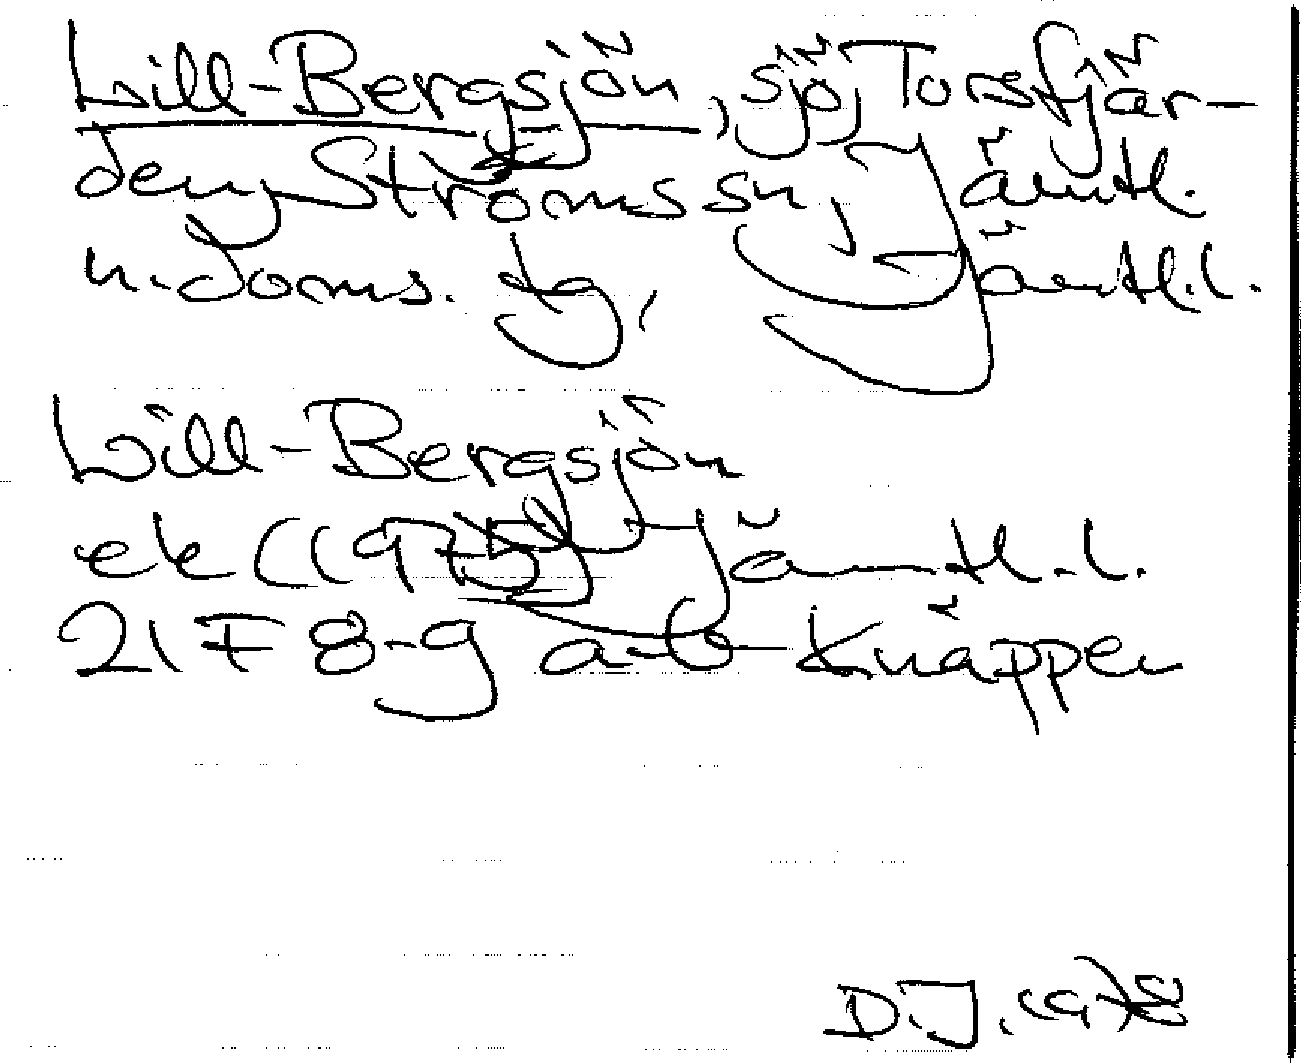 Lill-Bergsjön, sjö, Torsfjär-
den, Ströms sn, Jämtl.
n. doms. dg, Jämtl.l.
Lill-Bergsjön
ek (1975) Jämtl.l.
21F 8-9 a-b Knäppen
D.J. 1978